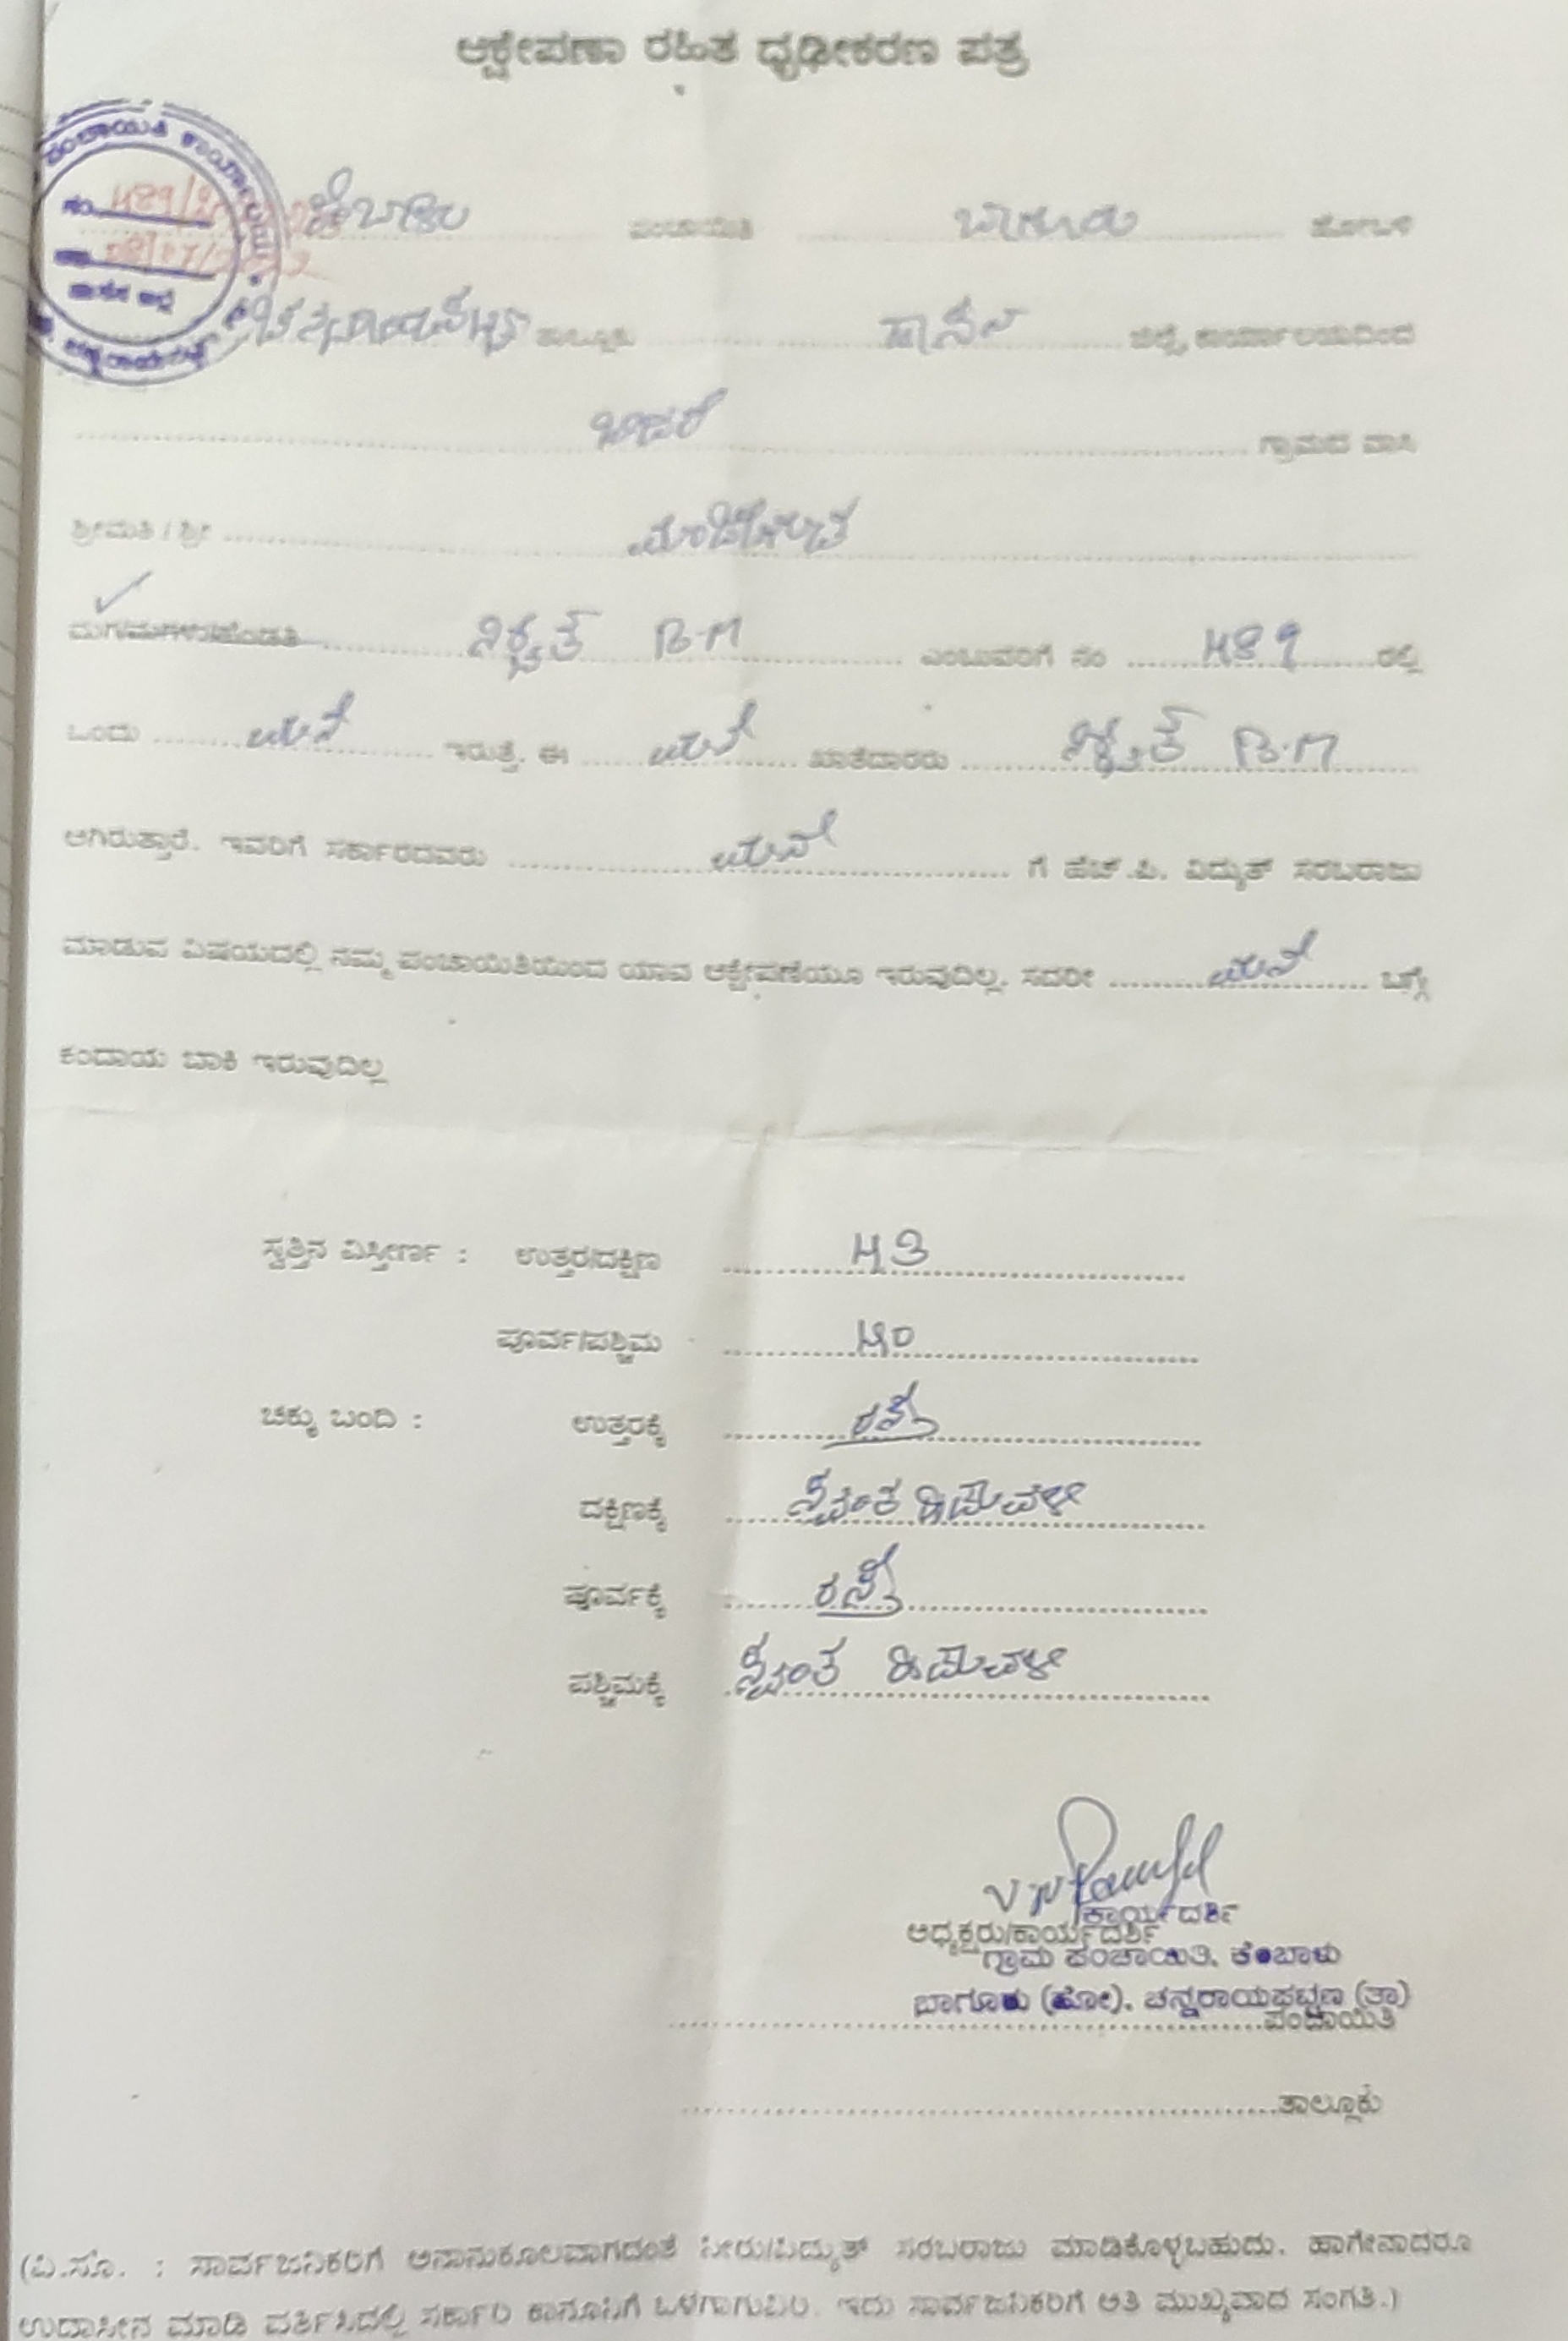 ಆಕ್ಷೇಪಣಾ ರಹಿತ ಧೃಢೀಕರಣ ಪತ್ರ
ಪಂಚಾಯಿತಿ ಕಾರ್ಯಾಲಯ
ನಂ. 489/
ಹಾಸನ ಜಿಲ್ಲೆ
ಕೆಂಬಾಳು ಪಂಚಾಯಿತಿ ಬಾಗೂರು ಹೋಬಳಿ
ಚನ್ನರಾಯಪಟ್ಟಣ ತಾಲ್ಲೂಕು ಹಾಸನ ಜಿಲ್ಲೆ, ಕಾರ್ಯಾಲಯದಿಂದ
ಬಿದರೆ ಗ್ರಾಮದ ವಾಸಿ
ಶ್ರೀಮತಿ / ಶ್ರೀ ಮಂಜೇಗೌಡ
ಮಗ/ಮಗಳು/ಹೆಂಡತಿ B.M ಎಂಬುವರಿಗೆ ನಂ 489 ರಲ್ಲಿ
ಒಂದು ಮನೆ ಇರುತ್ತೆ. ಈ ಮನೆ ಖಾತೆದಾರರು B.M
ಆಗಿರುತ್ತಾರೆ. ಇವರಿಗೆ ಸರ್ಕಾರದವರು ಮನೆ ಗೆ ಹೆಚ್.ಪಿ. ವಿದ್ಯುತ್ ಸರಬರಾಜು
ಮಾಡುವ ವಿಷಯದಲ್ಲಿ ನಮ್ಮ ಪಂಚಾಯಿತಿಯಿಂದ ಯಾವ ಆಕ್ಷೇಪಣೆಯೂ ಇರುವುದಿಲ್ಲ. ಸದರೀ ಮನೆ ಬಗ್ಗೆ
ಕಂದಾಯ ಬಾಕಿ ಇರುವುದಿಲ್ಲ
ಸ್ವತ್ತಿನ ವಿಸ್ತೀರ್ಣ : ಉತ್ತರ/ದಕ್ಷಿಣ 43
ಪೂರ್ವ/ಪಶ್ಚಿಮ 40
ಚಕ್ಕು ಬಂದಿ : ಉತ್ತರಕ್ಕೆ ರಸ್ತೆ
ದಕ್ಷಿಣಕ್ಕೆ ಸ್ವಂತ ಹಿಡುವಳಿ
ಪೂರ್ವಕ್ಕೆ ರಸ್ತೆ
ಪಶ್ಚಿಮಕ್ಕೆ ಸ್ವಂತ ಹಿಡುವಳಿ
ಕಾರ್ಯದರ್ಶಿ
ಅಧ್ಯಕ್ಷರು/ಕಾರ್ಯದರ್ಶಿ
ಗ್ರಾಮ ಪಂಚಾಯಿತಿ. ಕೆಂಬಾಳು
ಬಾಗೂರು (ಹೋ). ಚನ್ನರಾಯಪಟ್ಟಣ (ತಾ)
ಪಂಚಾಯಿತಿ
ತಾಲ್ಲೂಕು
(ವಿ.ಸೂ. : ಸಾರ್ವಜನಿಕರಿಗೆ ಅನಾನುಕೂಲವಾಗದಂತೆ ನೀರು/ವಿದ್ಯುತ್ ಸರಬರಾಜು ಮಾಡಿಕೊಳ್ಳಬಹುದು. ಹಾಗೇನಾದರೂ
ಉದಾಸೀನ ಮಾಡಿ ವರ್ತಿಸಿದಲ್ಲಿ ಸರ್ಕಾರಿ ಕಾನೂನಿಗೆ ಒಳಗಾಗುವಿರಿ. ಇದು ಸಾರ್ವಜನಿಕರಿಗೆ ಅತಿ ಮುಖ್ಯವಾದ ಸಂಗತಿ.)